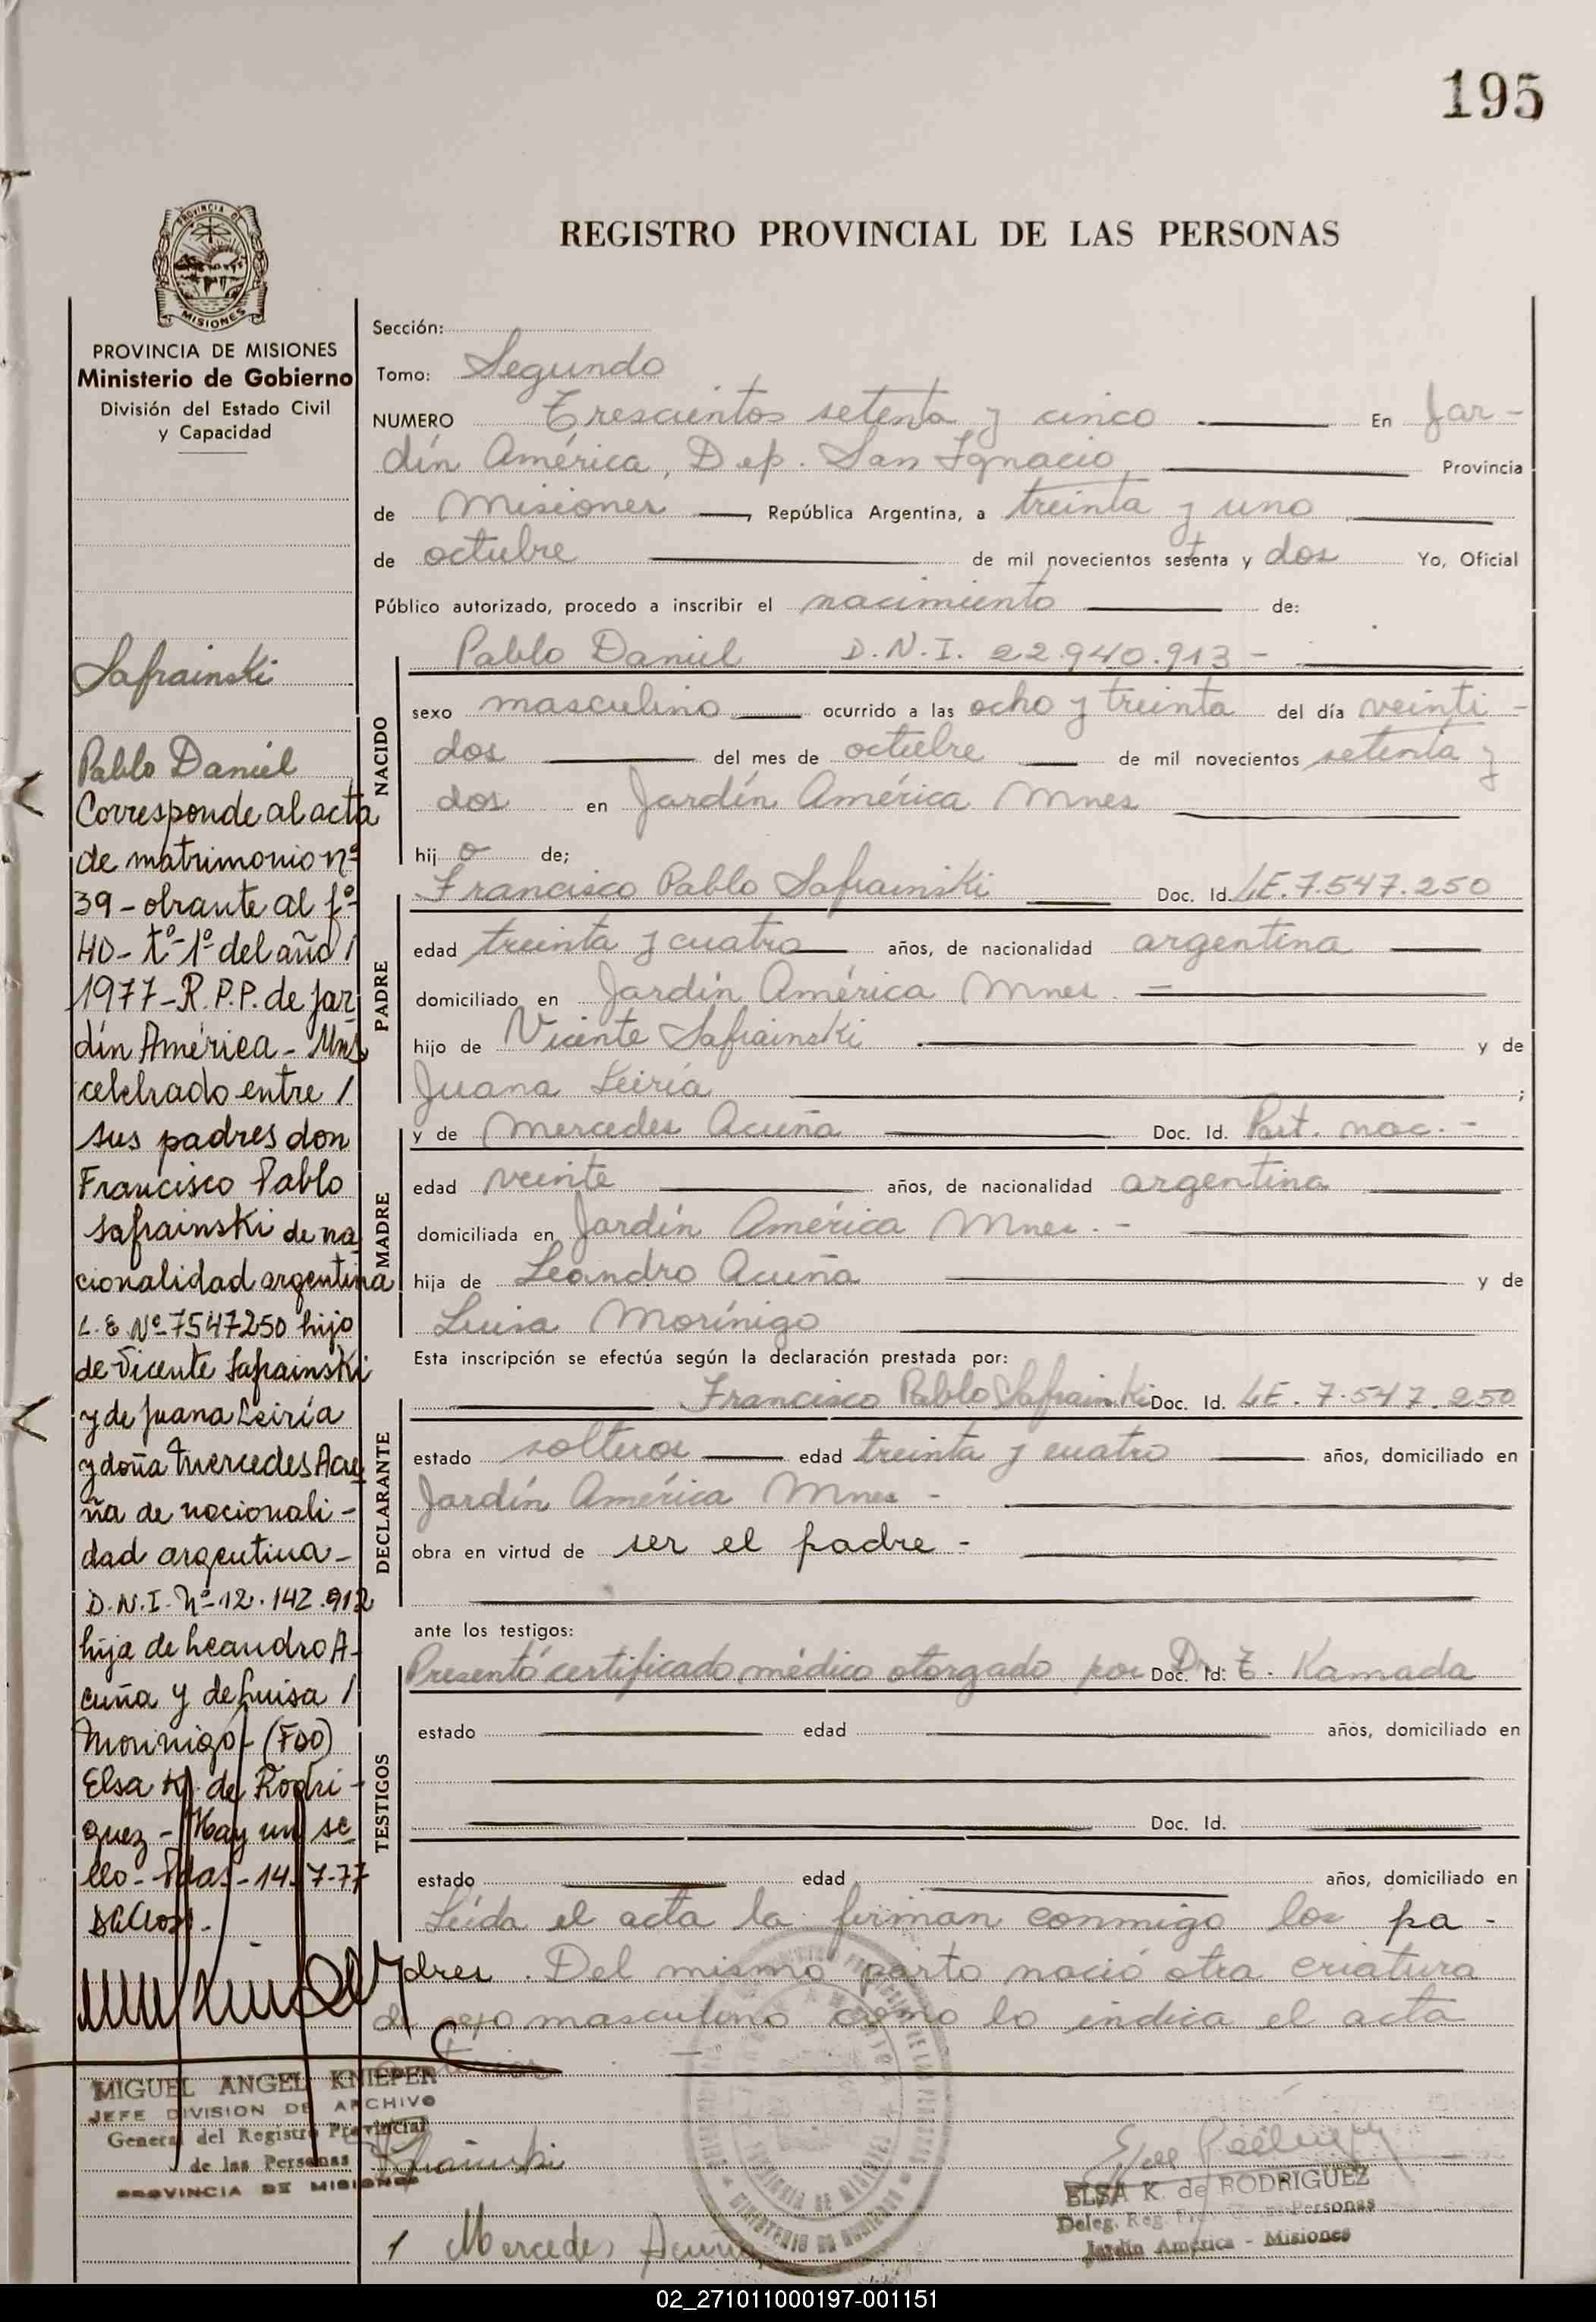 195
REGISTRO PROVINCIAL DE LAS PERSONAS
PROVINCIA DE
MISIONES
PROVINCIA DE MISIONES
Ministerio de Gobierno
División del Estado Civil
y Capacidad
Safrainski
Pablo Daniel
Corresponde al acta
de matrimonio nº
39 - obrante al fº
40 - tº - 1º del año /
1977 - R.P.P. de Jar
dín América - Mns
celebrado entre /
sus padres don
Francisco Pablo
Safrainski de na
cionalidad argentina
L.E Nº 7547250 hijo
de Vicente Safrainski
y de Juana Leiría
y doña Mercedes Acu
ña de nacionali-
dad argentina -
D.N.I. Nº 12.142.912
hija de Leandro A-
cuña y de Luisa /
Morinigo - (FDO)
Elsa K. de Rodri-
guez - Hay un se
llo - Pdas - 14-7-77
MIGUEL ANGEL KNIEPER
JEFE DIVISION DE ARCHIVO
General del Registro Provincial
de las Personas
PROVINCIA DE MISIONES
Sección:
Tomo: Segundo
NUMERO Trescientos setenta y cinco En Jar-
dín América, Dep. San Ignacio, Provincia
de Misiones, República Argentina, a treinta y uno
de octubre de mil novecientos setenta y dos Yo, Oficial
Público autorizado, procedo a inscribir el nacimiento de:
NACIDO
Pablo Daniel D.N.I. 22.940.913 -
sexo masculino ocurrido a las ocho y treinta del día veinti-
dos del mes de octubre de mil novecientos setenta y
dos en Jardín América Mnes
hij o de;
PADRE
Francisco Pablo Safrainski Doc. Id. LE. 7.547.250
edad treinta y cuatro años, de nacionalidad argentina
domiciliado en Jardín América Mnes. -
hijo de Vicente Safrainski y de
Juana Leiría ;
MADRE
y de Mercedes Acuña Doc. Id. Part. nac. -
edad veinte años, de nacionalidad argentina
domiciliada en Jardín América Mnes. -
hija de Leandro Acuña y de
Luisa Morínigo
Esta inscripción se efectúa según la declaración prestada por:
DECLARANTE
Francisco Pablo Safrainski Doc. Id. LE. 7.547.250
estado solteros edad treinta y cuatro años, domiciliado en
Jardín América Mnes -
obra en virtud de ser el padre -
ante los testigos:
TESTIGOS
Presentó certificado médico otorgado por Doc. Id: Dr. T. Kamada
estado edad años, domiciliado en
Doc. Id.
estado edad años, domiciliado en
Leída el acta la firman conmigo los pa-
dres. Del mismo parto nació otra criatura
de sexo masculino como lo indica el acta
Safrainski
Mercedes Acuña
ELSA K. de RODRIGUEZ
Deleg. Reg. Prov. de las Personas
Jardín América - Misiones
02_271011000197-001151